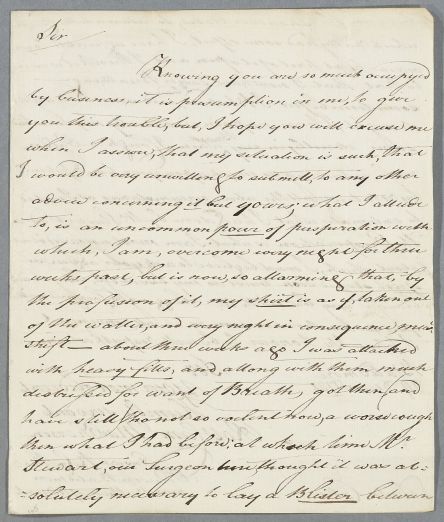 Sir
Knowing you are so much ocupyed
by business, it is presumption in me, to give
you this trouble, but, I hope you will excuse me
when I assure, that my situation is such, that
I would be very unwilling to submitt, to any other
advice concerning it but yours; what I allude
to, is an uncommon pour of perspiration with
which, I am, overcome every night for three
weeks past, but is now, so allarming, that, by
the profussion of it, my shirt is as if taken out
of the watter, and every night in consequence, must
shift — about three weeks ago I was attacked
with heavy fitts, and allong with them much
distressed for want of Breath, got then, and
have still tho not so voilent now, a worse cough
then what I had before; at which time Mr.
Stewart, our Surgeon thought it was ab-
-solutely necessary to lay a Blister between